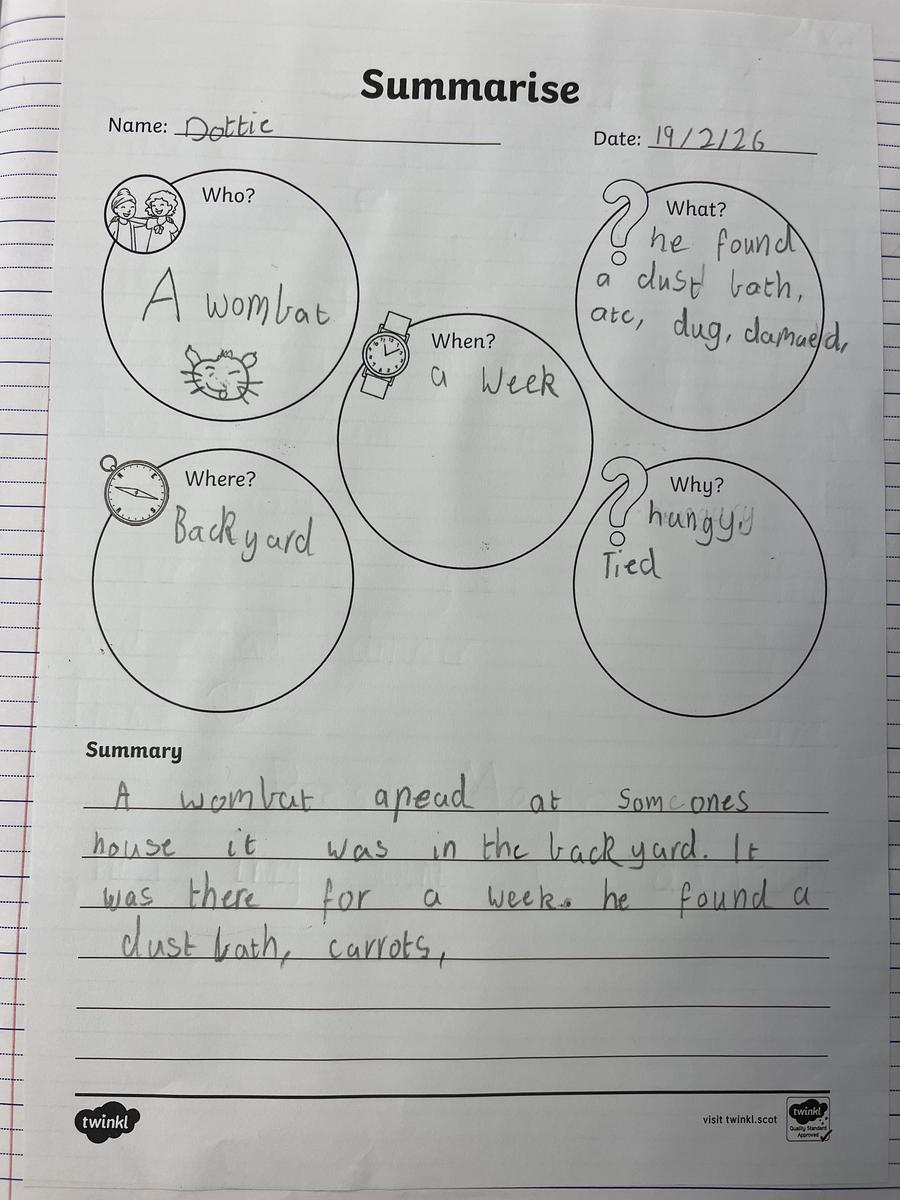 Summarise
Name: Dottie
Date: 19/2/26
Who?
A wombat
What?
he found
a dust bath,
ate, dug, damaed,
When?
a Week
Where?
Backyard
Why?
hungy,
Tied
Summary
A wombat apead at someones
house it was in the back yard. It
was there for a week. he found a
dust bath, carrots,
twinkl
visit twinkl.scot
twinkl
Quality Standard
Approved